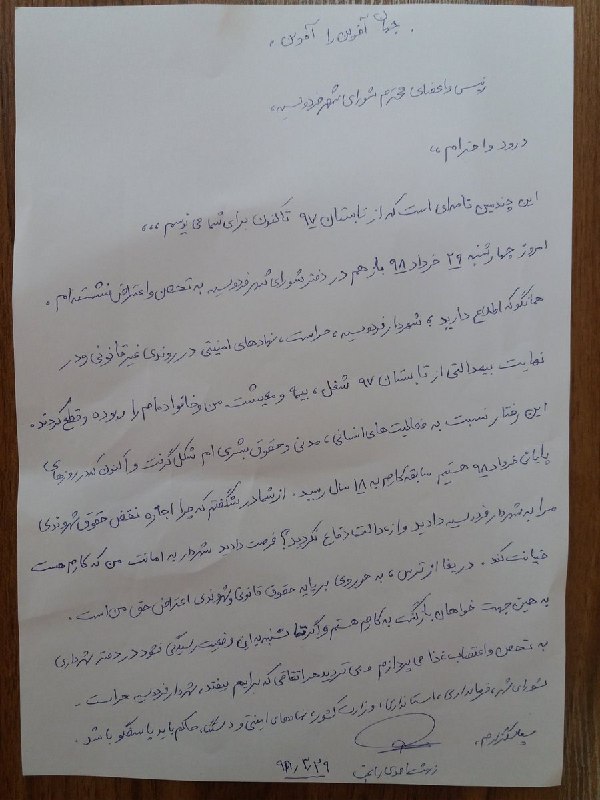 جهان آفرین را آفرین.
رئیس و اعضای محترم شورای شهر فردوسیه،
درود و احترام،،
این چندمین نامه‌ای است که از تابستان ۹۷ تاکنون برای شما می نویسم،،،
امروز چهارشنبه ۲۹ خرداد ۹۸ باز هم در دفتر شورای شهر فردوسیه به تحصن و اعتراض نشسته ام.
همانگونه که اطلاع دارید، شهردار فردوسیه، حراست، نهادهای امنیتی در روندی غیرقانونی و در
نهایت بیعدالتی از تابستان ۹۷ شغل، بیمه و معیشت من و خانواده‌ام را ربوده و قطع کردند.
این رفتار نسبت به فعالیت‌های انسانی، مدنی و حقوق بشری ام شکل گرفت و اکنون که در روزهای
پایانی خرداد ۹۸ هستیم سابقه کارم به ۱۸ سال رسید. از شما در شگفتم که چرا اجازه نقض حقوق شهروندی
مرا به شهردار فردوسیه دادید و از عدالت دفاع نکردید؟! فرصت دادید شهردار به امانت من که کارم هست
خیانت کند. دریغا از ترس، به هر روی بر پایه حقوق قانونی و شهروندی اعتراض حق من است.
به همین جهت خواهان بازگشت به کارم هستم و اگر تا شنبه به این وضعیت رسیدگی نشود در دفتر شهرداری
به تحصن و اعتصاب غذا می پردازم و بی تردید هر اتفاقی که برایم بیفتد، شهردار فردوسیه، حراست،
شورای شهر، فرمانداری، استانداری، وزارت کشور، نهادهای امنیتی و دستگاه حاکم باید پاسخگو باشد.
سپاسگزارم،
زرتشت احمدی راغب
۹۸/۳/۲۹